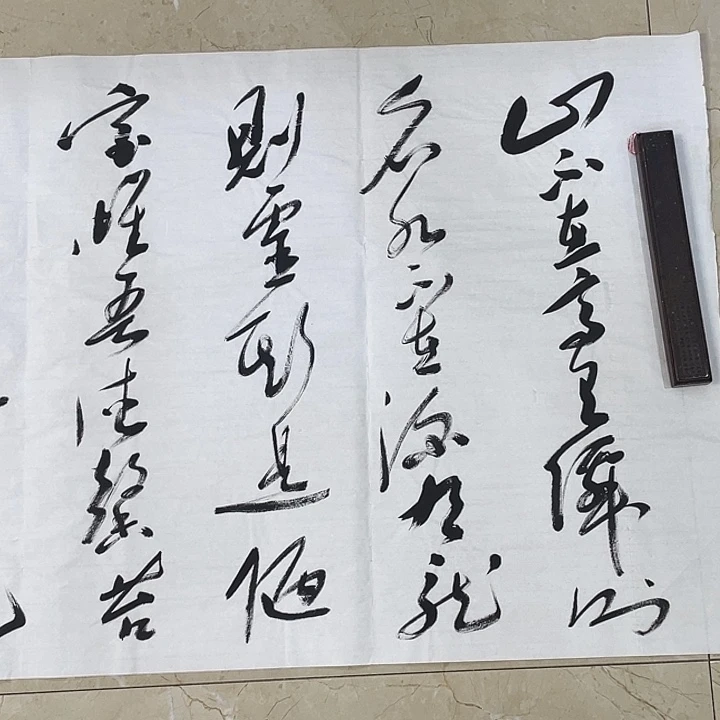 山不在高有僊則
名水不在深有龍
則靈斯是陋
室惟吾德馨苔